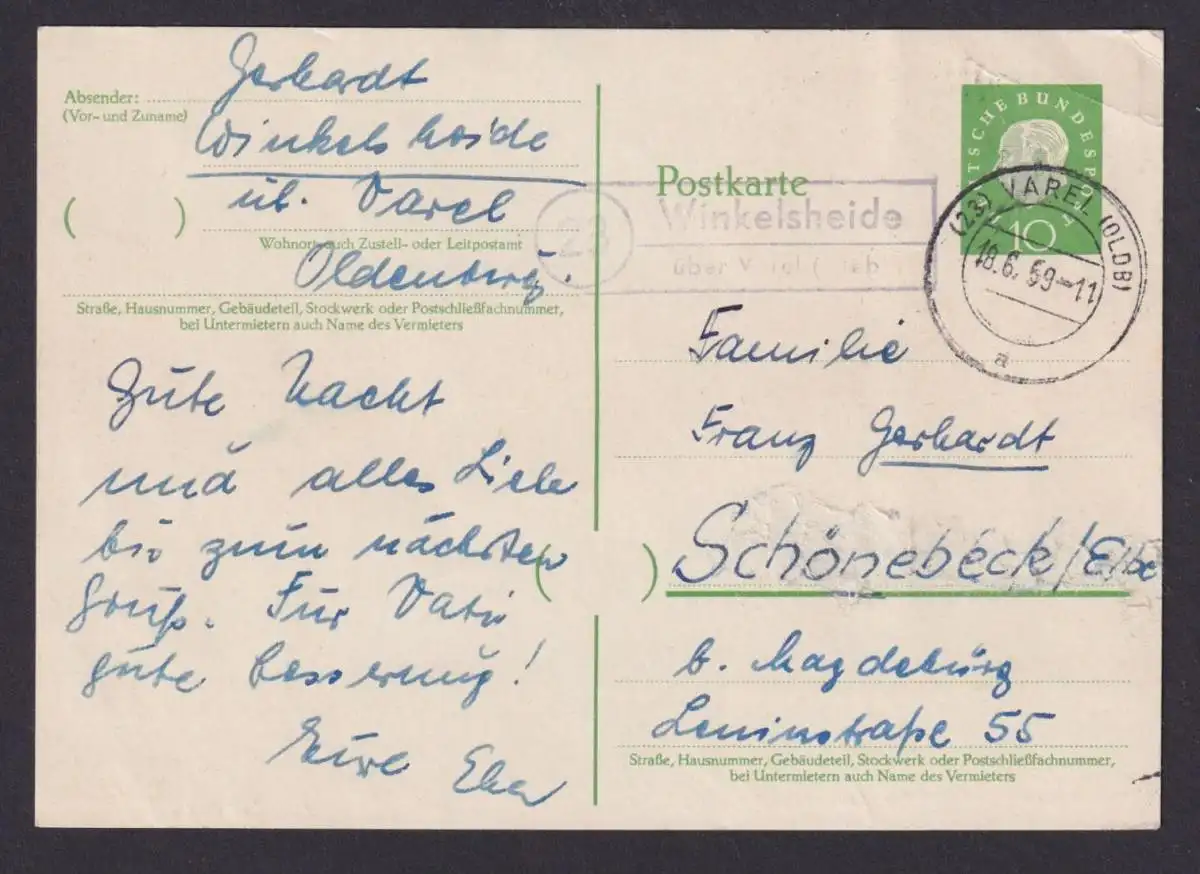 Absender:
(Vor- und Zuname)
Gerhardt
Winkelsheide
üb. Varel
( )
Wohnort, auch Zustell- oder Leitpostamt
Oldenburg.
Straße, Hausnummer, Gebäudeteil, Stockwerk oder Postschließfachnummer,
bei Untermietern auch Name des Vermieters
Gute Nacht
und alles Liebe
bis zum nächsten
Gruß. Für Vati
gute Besserung!
Eure
Postkarte
DEUTSCHE BUNDESPOST
10
23
Winkelsheide
über Varel
(23) VAREL (OLDB)
18.6.59-11
a
Familie
Franz Gerhardt
( ) Schönebeck/Elbe
b. Magdeburg
Leninstraße 55
Straße, Hausnummer, Gebäudeteil, Stockwerk oder Postschließfachnummer,
bei Untermietern auch Name des Vermieters